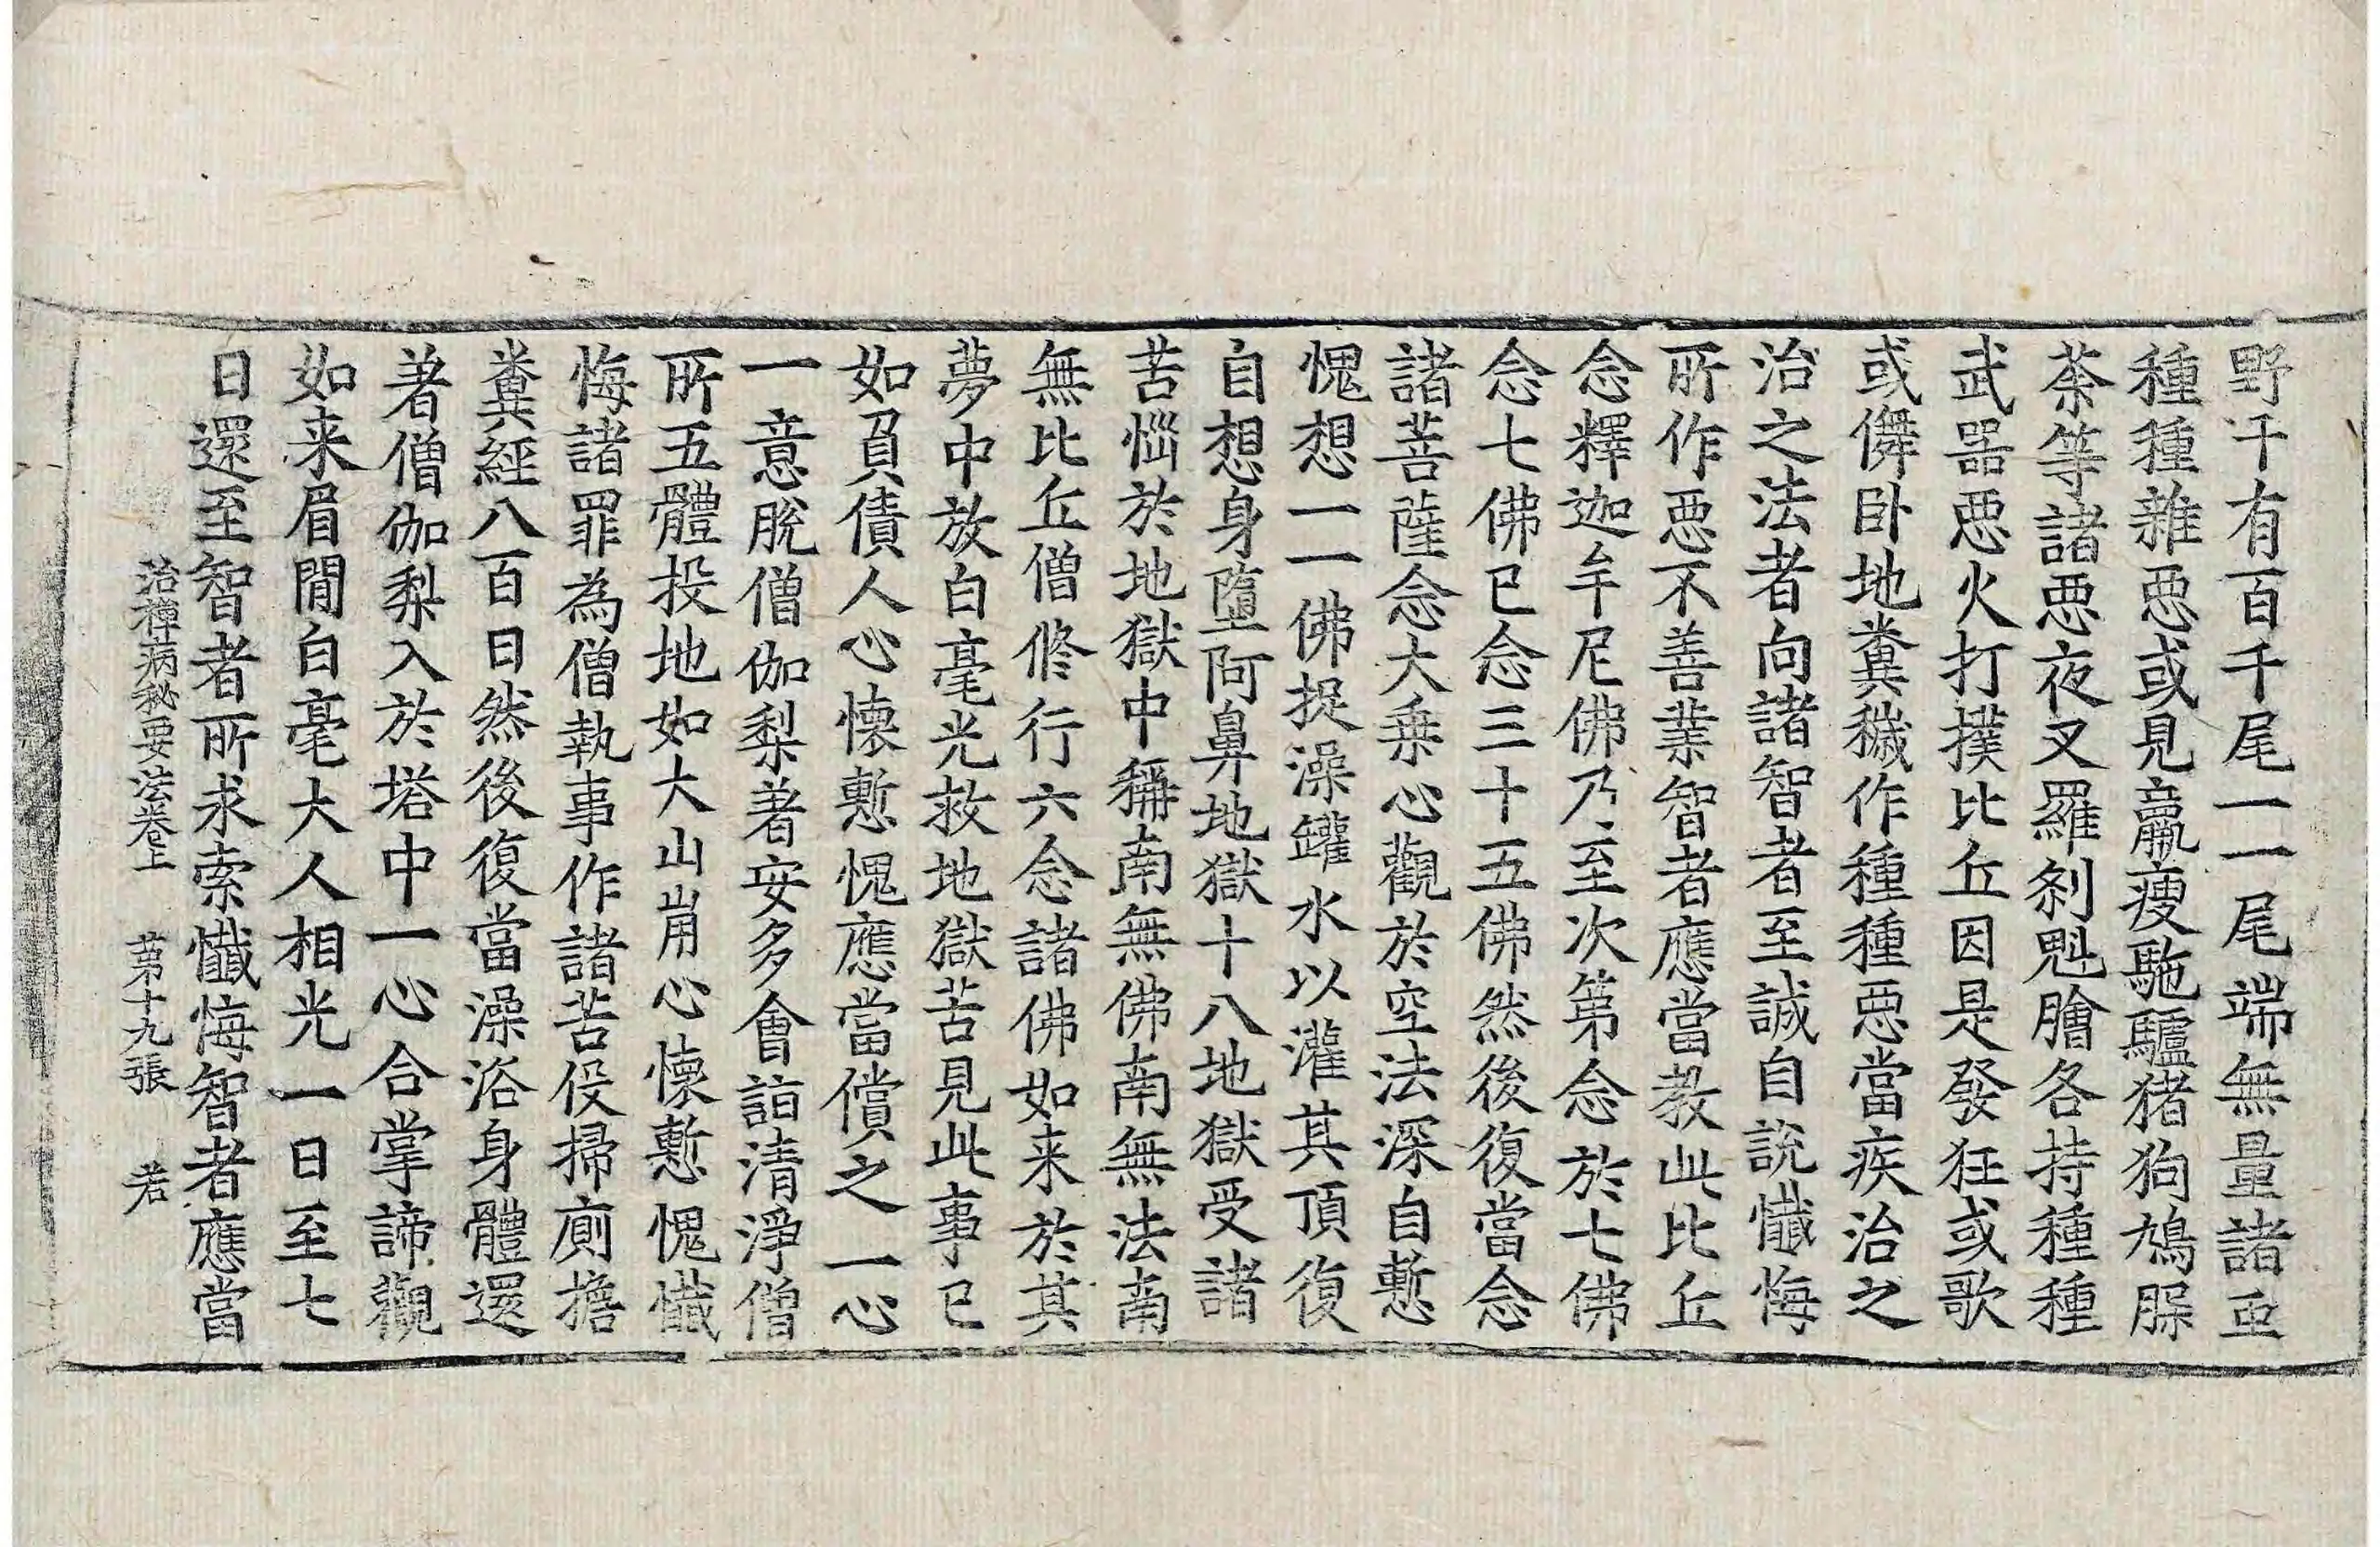 野干有百千尾一一尾端無量諸䖝
種種雜惡或見羸瘦駞驢猪狗鳩脲
荼等諸惡夜叉羅剎魁膾各持種種
武器惡火打撲比丘因是發狂或歌
或儛卧地糞穢作種種惡當疾治之
治之法者向諸智者至誠自說懺悔
所作惡不善業智者應當教此比丘
念釋迦牟尼佛乃至次第念於七佛
念七佛已念三十五佛然後復當念
諸菩薩念大乗心觀於空法深自慙
愧想一一佛捉澡罐水以灌其頂復
自想身墮阿鼻地獄十八地獄受諸
苦惱於地獄中稱南無佛南無法南
無比丘僧修行六念諸佛如来於其
夢中放白毫光救地獄苦見此事已
如負債人心懷慙愧應當償之一心
一意脫僧伽梨著安多會詣清淨僧
所五體投地如大山崩心懷慙愧懺
悔諸罪為僧執事作諸苦役掃廁擔
糞經八百日然後復當澡浴身體還
著僧伽梨入於塔中一心合掌諦觀
如来眉間白毫大人相光一日至七
日還至智者所求索懺悔智者應當
治禪病秘要法卷上 第十九張 若